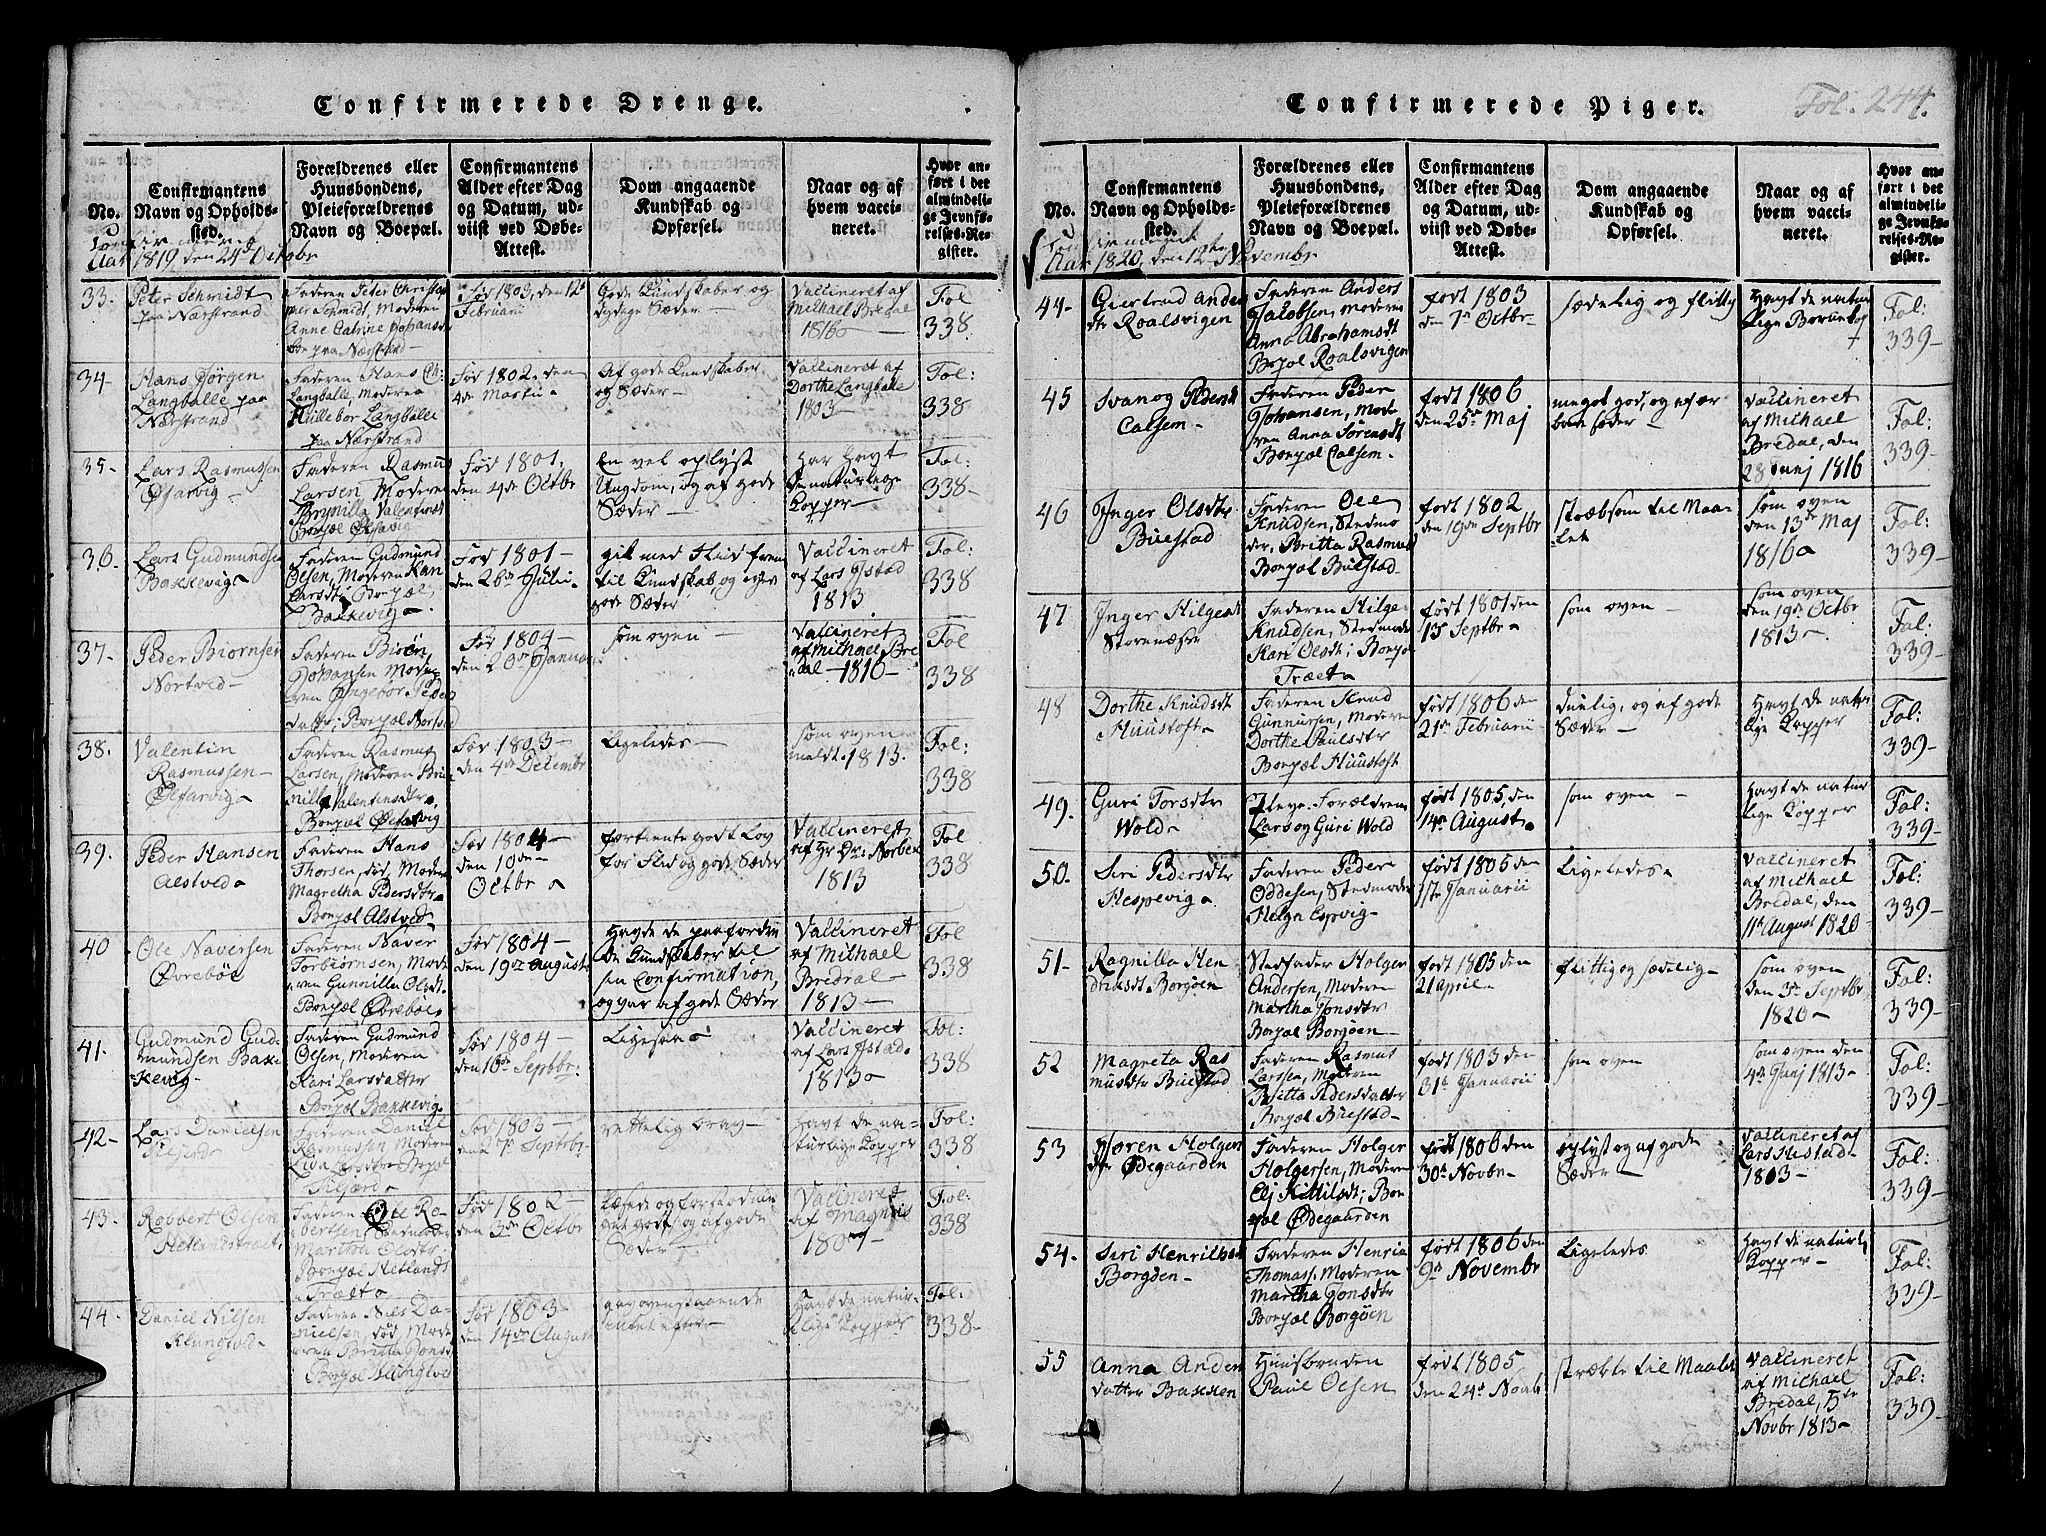 Confirmerede Drenge.
No.
Confirmantens
Navn og Opholds-
sted.
Forældrenes eller
Huusbondens,
Pleieforældrenes
Navn og Boepæl.
Confirmantens
Alder efter Dag
og Datum, ud-
viist ved Døbe-
Attest.
Dom angaaende
Kundskab og
Opførsel.
Naar og af
hvem vacci-
neret.
Hvor an-
ført i det
almindeli-
ge Jevnfø-
relses-Re-
gister.
Aar 1819, den 24de Octobr
33.
Peter Schmidt
paa Nærstrand
Faderen Peter Christo
pher Schmidt, Moderen
Anne Catrine Johansd
Boe paa Nærstrand
Fød 1803, den 12te
Februarii
Gode Kundskaber og
dydige Sæder
Vaccineret af
Michael Bredal
1816
Fol
338.
34.
Hans Jørgen
Langballe paa
Nærstrand
Faderen Hans Ch:
Langballe, Moderen
Hillebor Langballe
paa Nærstrand
Fød 1802, den
4de Martii
Af gode Kundskaber
og Sæder
Vaccineret af
Dorthe Langballe
1803
Fol:
338
35-
Lars Rasmussen
Ølfarvig
Faderen Rasmus
Larsen, Moderen
Brynilla Valentinsd
Boepæl Ølfarvig
Fød 1801,
den 4de Octbr
En vel oplyst
Ungdom, og af gode
Sæder
Har havt
de naturlige
Kopper
Fol:
338-
36.
Lars Gudmundsen
Bakkevig
Faderen Gudmund
Olsen, Moderen Kari
Larsdt; Boepæl,
Bakkevig
Fød 1801-
den 26de Julii
gik med Flid frem
til Kundskab, og
gode Sæder
Vaccineret
af Lars Istad
1813
Fol:
338
37-
Peder Biørnsen
Nortved
Faderen Biørn
Johansen Mode
ren Ingebor Peders
datter; Boepæl Nortved
Fød 1804-
den 20de Januar
som oven
Vaccineret
af Michael Bre
dal-1816-
Fol
338
38.
Valentin
Rasmussen-
Ølfarvig
Faderen Rasmus
Larsen, Moderen Bri
nilla Valentinsdtr,
Boepæl Ølfarvig
Fød 1803-
den 4de Decembr
Ligeledes
som oven
meldt. 1813.
Fol:
338
39.
Peder Hansen
Alstved
Faderen Hans
Thorsen, død, Moder
Magretha Pedersdtr
Boepæl Alstved
Fød 1804-
den 10de
Octbr
fortiente godt Lov
for Flid og gode Sæder
Vaccineret
af Hr Dr: Norben
1813
Fol
338
40
Ole Naversen
Øvrebøe
Faderen Naver
Torbiørnsen, Mode
ren Gunnilla Olsdt.
Boepæl Øvrebøe
Fød 1804-
den 19de August
Havde de paafordre
de Kundskaber til
sin Confirmation,
og var af gode Sæder
Vaccineret
af Michael
Bredral
1813-
Fol
338
41.
Gudmund Gud-
mundsen Bak-
kevig-
Faderen Gudmund
Olsen, Moderen
Kari Larsdatter
Boepæl Bakkevig
Fød 1804-
den 16de Septbr:
Ligesaa
Vaccineret
af Lars Istad
1813
Fol:
338
42-
Lars Danielsen
Faderen Daniel
Rasmussen, Moderen
Fød 1803-
den 27de Septbr
rettelig brav-
havt de na-
turlige Kopper
Fol:
338
43.
Robbert Olsen
Hetlandstræet
Faderen Ole Ro-
bertsen,
Martha Olsdtr.
Boepæl Hetlands
Træet
Fød 1802-
den 3de Octbr
Læsede og forstod
godt, og af gode
Sæder
Vaccineret
af Magnus
1807-
Fol:
338
44.
Daniel Nilsen
Klungtved
Faderen Nils Da-
nielsen, død, Mode
ren Britta Jonsd
Boepæl Klungtved
Fød 1803-
den 14de August
gav ovenstaaende
intet efter
Havt de natur-
lige Kopper
Fol:
338-
Confirmerede Piger.
Fol. 244.
No.
Confirmantens
Navn og Opholds-
sted.
Forældrenes eller
Huusbondens,
Pleieforældrenes
Navn og Boepæl.
Confirmantens
Alder efter Dag
og Datum, ud-
viist ved Døbe-
Attest.
Dom angaaende
Kundskab og
Opførsel.
Naar og af
hvem vacci-
neret.
Hvor an-
ført i det
almindeli-
ge Jevnfø-
relses-Re-
gister.
Aar 1820, den 12te Novembr
44-
Giertrud Anders
dtr Roalsvigen
Faderen Anders
Jacobsen, Moderen
Anna Abrahamsdt
Boepæl Roalsvigen
født 1803
den 7de Octbr
sædelig og flittig
Havt de natur
lige Børnekop
Fol:
339-
45
Svanog Pedersdt
Calsem-
Faderen Peder
Johansen, Mode
ren Anna Sørensdt
Boepæl Calsem-
født 1806
den 25de Maj
meget god, og af ær
bare Sæder
Vaccineret
af Michael
Bredal, den
28 Junj 1816
Fol:
339-
46
Inger Olsdtr
Buestad
Faderen Ole
Knudsen, Stedmo
der, Britta Rasmus
Boepæl Buestad
født 1802
den 19de Septbr
stræbsom til Maa-
let
som oven
den 13de Maj
1816
Fol:
339-
47
Inger Hilgesdt
Storenæsse
Faderen Hilge
Knudsen, Stedmoder
Kari Olsdt; Boepæl
Træet
født 1801 den
15 Septbr
som oven
som oven
den 19de Octbr
1813-
Fol:
339-
48
Dorthe Knudsdt
Huustoft
Faderen Knud
Gunnursen, Moderen
Dorthe Paulsdtr
Boepæl Huustoft
født 1806 den
21de Februarii
duelig, og af gode
Sæder
Havt de natur
lige Kopper
Fol:
339-
49.
Guri Torsdtr
Wold
Pleye-Forældrene
Lars og Guri Wold
født 1805, den
14de August
som oven
Havt de natur
lige Kopper
Fol:
339-
50.
Siri Pedersdtr
Hespevig
Faderen Peder
Oddesen, Stedmoder
Helga Espvig
født 1805 den
1ste Januarii
Ligeledes
Vaccineret
af Michael
Bredal, den
11te August 1820
Fol:
339-
51-
Ragnilla Hen
driksdt Borgøen
Stedfader Holger
Andersen, Moderen
Martha Jonsdtr
Boepæl Borgøen
født 1805 den
21 April
flittig og sædelig-
som oven
den 3de Septbr
1820
Fol:
339-
52
Magreta Ras
musdtr Buestad
Faderen Rasmus
Larssen, Moderen
Britta Pedersdatter
Boepæl Buestad
født 1803 den
31te Januarii
som oven
som oven den
4de Junj 1813
Fol:
339-
53
Jøren Holger
dtr Ødegaarden
Faderen Holger
Holgersen, Moderen
Elj Kittilsdt; Boe
pæl Ødegaarden
født 1806 den
30te Novbr
oplyst og af gode
Sæder
Vaccineret af
Lars Histad
1803-
Fol:
339-
54.
Siri Henrichsdt
Borgøen
Faderen Henric
Thomass. Moderen
Martha Jonsdtr
Boepæl Borgøen
født 1806 den
9de Novembr
Ligeledes
Havt de naturl:
Kopper-
Fol:
339-
55
Anna Anders
datter Bakken
Huusbonden
Paul Olsen
født 1805
den 24de Novb
stræbte til Maalet
Vaccineret
af Michael
Bredal, 15te
Novbr 1813
Fol:
339-